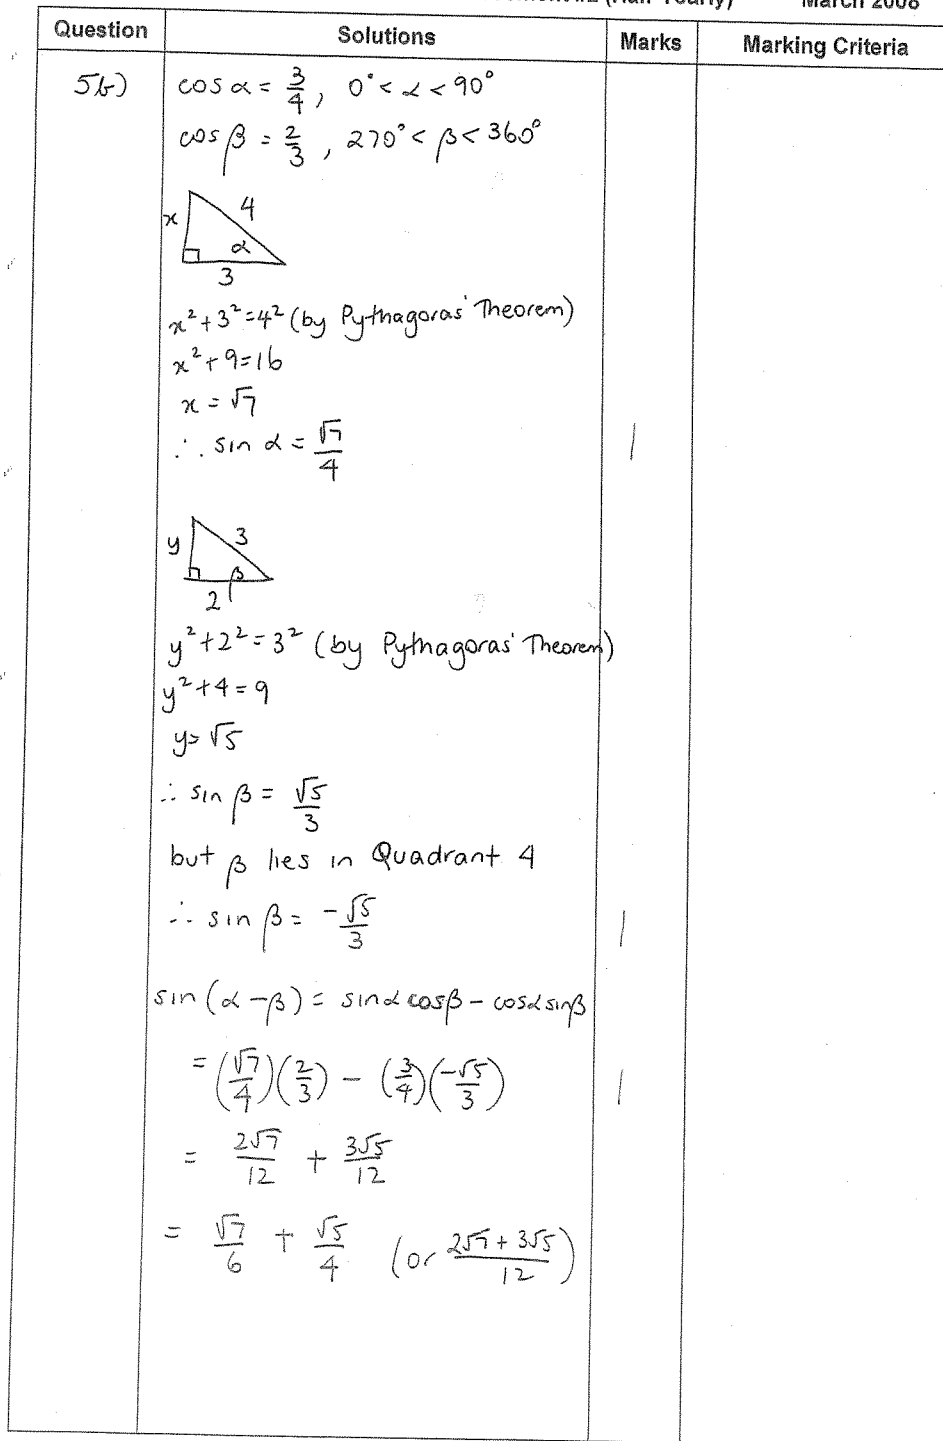 (Half Yearly) March 2008
Question Solutions Marks Marking Criteria
5b) cos α = 3/4, 0° < α < 90°
cos β = 2/3, 270° < β < 360°
x 4 α 3
x² + 3² = 4² (by Pythagoras' Theorem)
x² + 9 = 16
x = √7
∴ sin α = √7/4 1
y 3 β 2
y² + 2² = 3² (by Pythagoras' Theorem)
y² + 4 = 9
y = √5
∴ sin β = √5/3
but β lies in Quadrant 4
∴ sin β = -√5/3 1
sin (α - β) = sin α cos β - cos α sin β
= (√7/4)(2/3) - (3/4)(-√5/3) 1
= 2√7/12 + 3√5/12
= √7/6 + √5/4 (or 2√7 + 3√5/12)